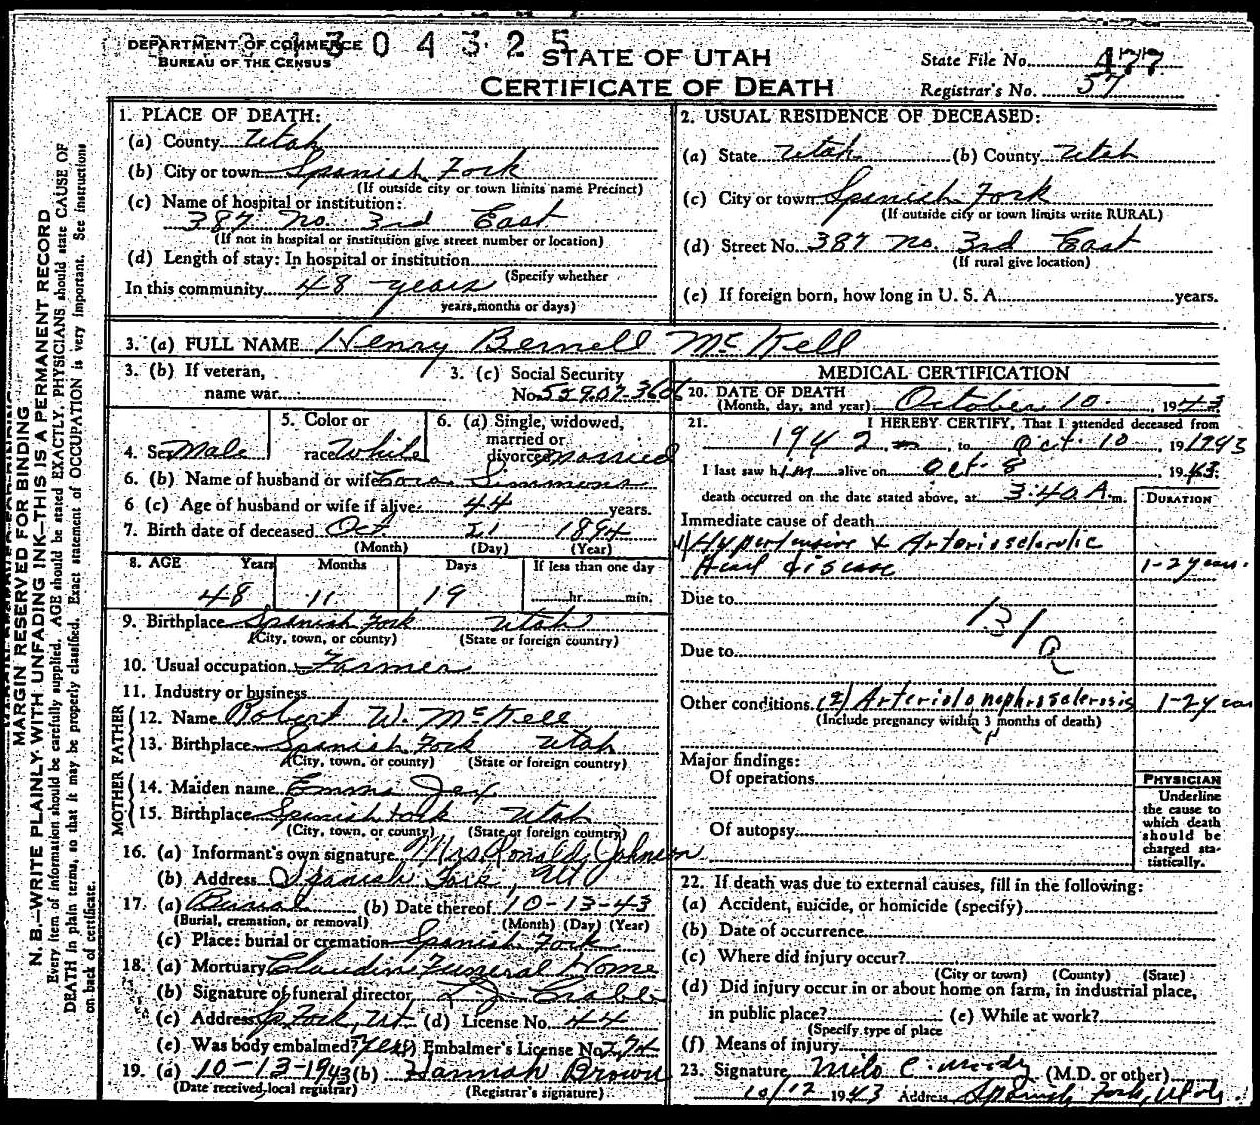 1304325
DEPARTMENT OF COMMERCE
BUREAU OF THE CENSUS
STATE OF UTAH
CERTIFICATE OF DEATH
State File No. 477
Registrar's No. 57
MARGIN RESERVED FOR BINDING
N. B.—WRITE PLAINLY WITH UNFADING INK—THIS IS A PERMANENT RECORD
Every item of information should be carefully supplied. AGE should be stated EXACTLY. PHYSICIANS should state CAUSE OF
DEATH in plain terms, so that it may be properly classified. Exact statement of OCCUPATION is very important. See instructions
on back of certificate.
1. PLACE OF DEATH:
(a) County Utah
(b) City or town Spanish Fork
(If outside city or town limits name Precinct)
(c) Name of hospital or institution:
387 No. 3rd East
(If not in hospital or institution give street number or location)
(d) Length of stay: In hospital or institution
(Specify whether
In this community 48 years
years, months or days)
2. USUAL RESIDENCE OF DECEASED:
(a) State Utah (b) County Utah
(c) City or town Spanish Fork
(If outside city or town limits write RURAL)
(d) Street No. 387 No. 3rd East
(If rural give location)
(e) If foreign born, how long in U. S. A. years.
3. (a) FULL NAME Henry Bernell McKell
3. (b) If veteran,
name war
3. (c) Social Security
No.
4. Sex Male
5. Color or
race White
6. (a) Single, widowed,
married or
divorced Married
6. (b) Name of husband or wife Cora Simmons
6 (c) Age of husband or wife if alive 44 years.
7. Birth date of deceased Oct. 21 1894
(Month) (Day) (Year)
8. AGE Years Months Days If less than one day
48 11 19 hr. min.
9. Birthplace Spanish Fork Utah
(City, town, or county) (State or foreign country)
10. Usual occupation Farmer
11. Industry or business
FATHER
12. Name Robert W. McKell
13. Birthplace Spanish Fork Utah
(City, town, or county) (State or foreign country)
MOTHER
14. Maiden name Emma Jex
15. Birthplace Spanish Fork Utah
(City, town, or county) (State or foreign country)
16. (a) Informant's own signature Mrs. Ronald Johnson
(b) Address Spanish Fork, Ut
17. (a) Burial (b) Date thereof 10-13-43
(Burial, cremation, or removal) (Month) (Day) (Year)
(c) Place: burial or cremation Spanish Fork
18. (a) Mortuary Claudin Funeral Home
(b) Signature of funeral director
(c) Address Sp. Fork, Ut. (d) License No. 44
(e) Was body embalmed? yes Embalmer's License No. 274
19. (a) 10-13-1943 (b) Hannah Brown
(Date received local registrar) (Registrar's signature)
MEDICAL CERTIFICATION
20. DATE OF DEATH
(Month, day, and year) October 10, 1943
21. I HEREBY CERTIFY, That I attended deceased from
1942, to Oct. 10 19 1943
I last saw him alive on Oct. 8 1943.
death occurred on the date stated above, at 3:40 A m.
DURATION
Immediate cause of death
1) Hypertensive & Arteriosclerotic
Heart disease 1-2 years.
Due to
131
Due to
Other conditions (2) Arteriolonephrosclerosis 1-2 years
(Include pregnancy within 3 months of death)
Major findings:
Of operations
Of autopsy
PHYSICIAN
Underline
the cause to
which death
should be
charged sta-
tistically.
22. If death was due to external causes, fill in the following:
(a) Accident, suicide, or homicide (specify)
(b) Date of occurrence
(c) Where did injury occur?
(City or town) (County) (State)
(d) Did injury occur in or about home on farm, in industrial place,
in public place? (e) While at work?
(Specify type of place
(f) Means of injury
23. Signature Milo C. Moody (M.D. or other)
10/12 1943 Address Spanish Fork, Utah.